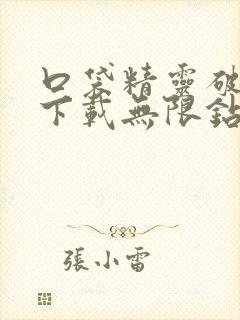 口袋精靈破
下載無限鉆
張小雷